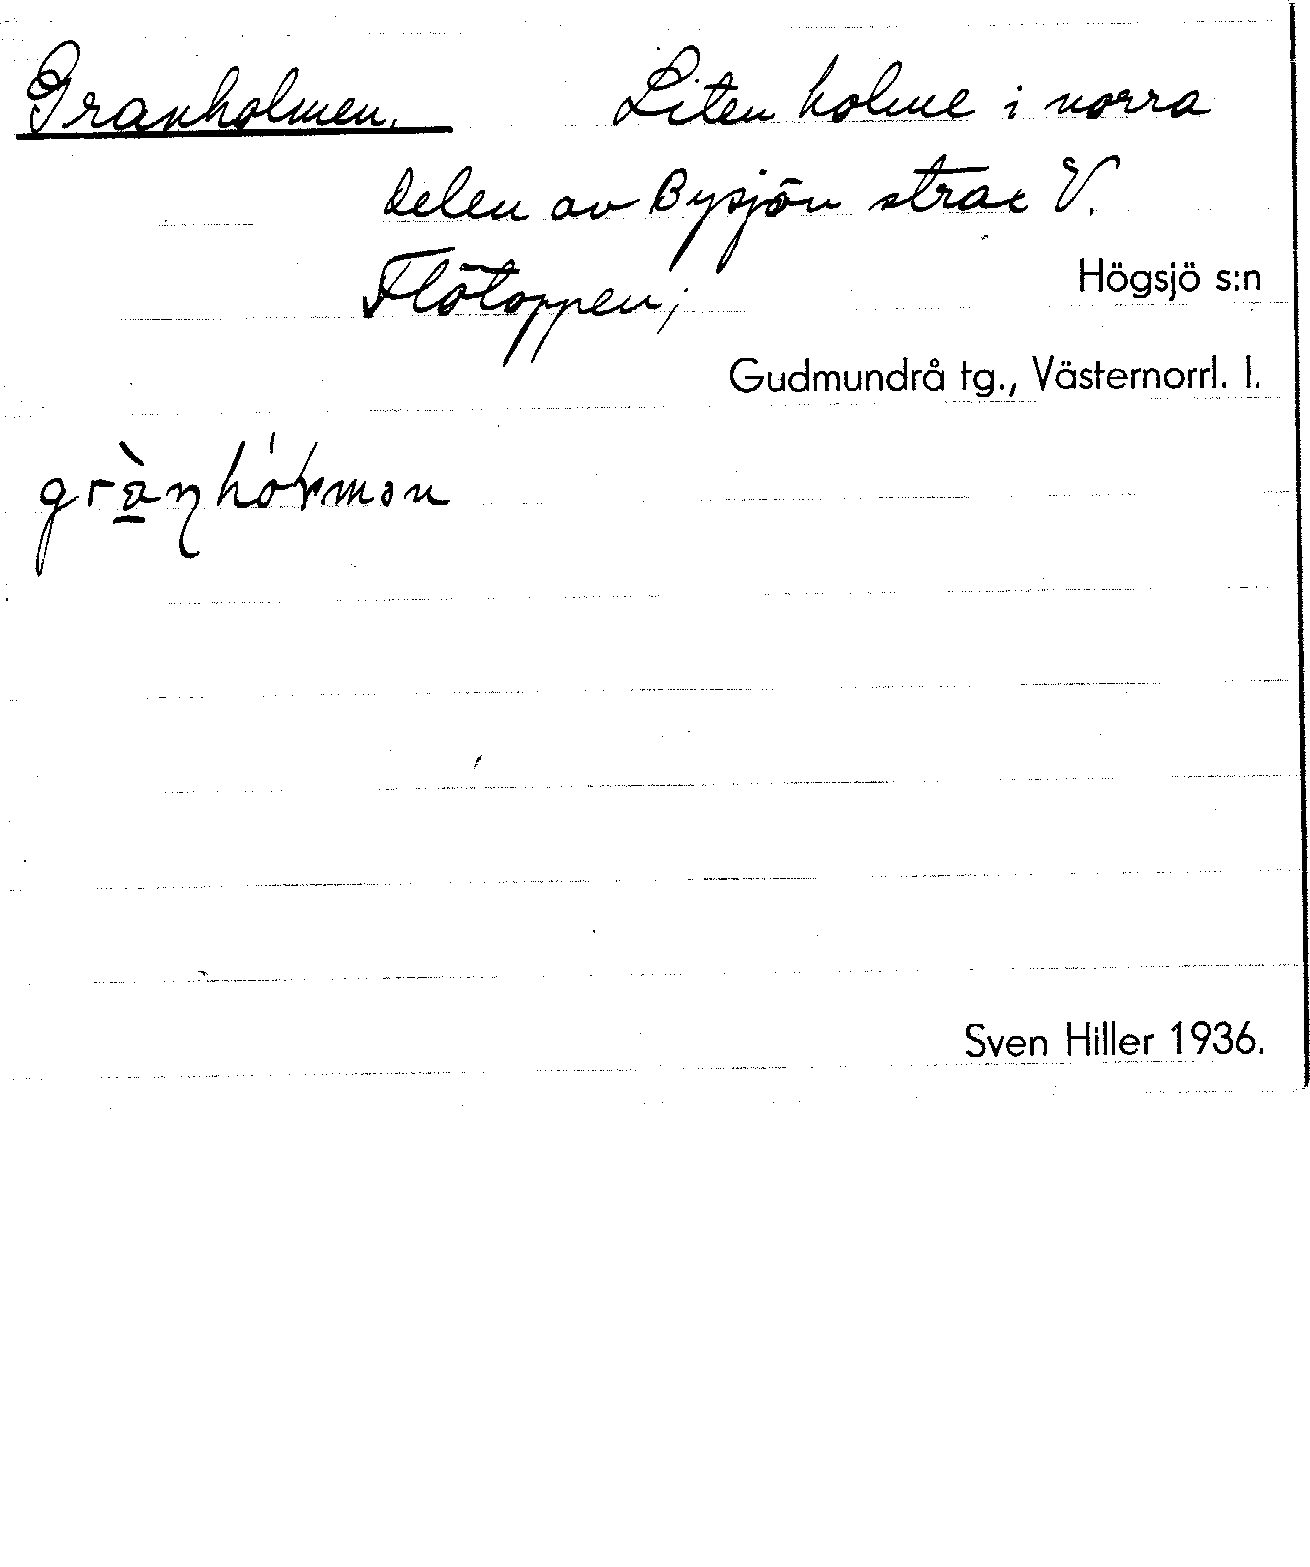 Granholmen. Liten holme i norra
delen av Bysjön strax V.
Flötoppen;
Högsjö s:n
Gudmundrå tg., Västernorrl. l.
Sven Hiller 1936.